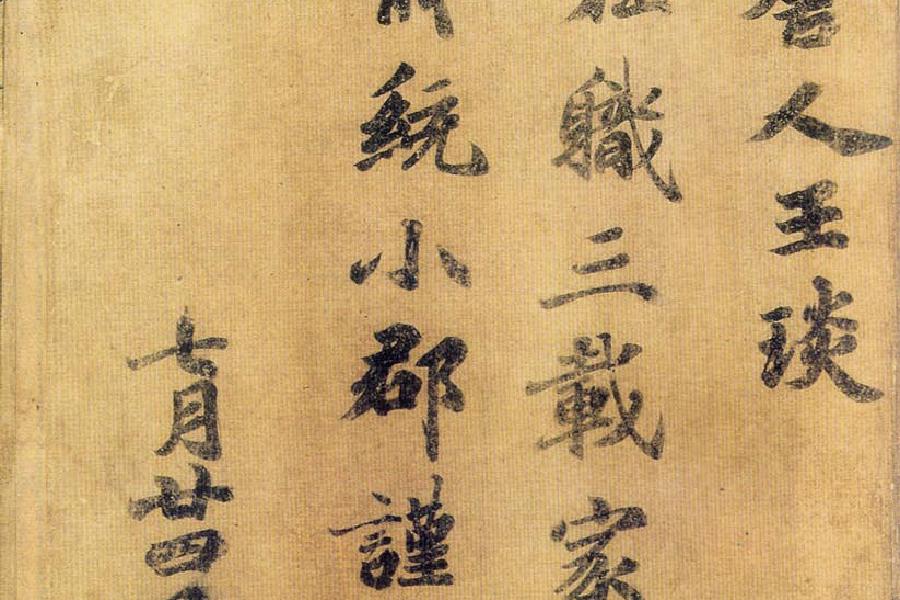 人王琰
職三載家
統小郡謹
七月廿四